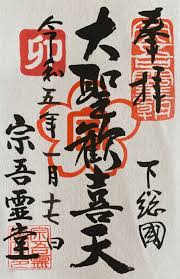 奉拝
下総國
大聖歓喜天
卯
令和五年一月十七日
宗吾霊堂